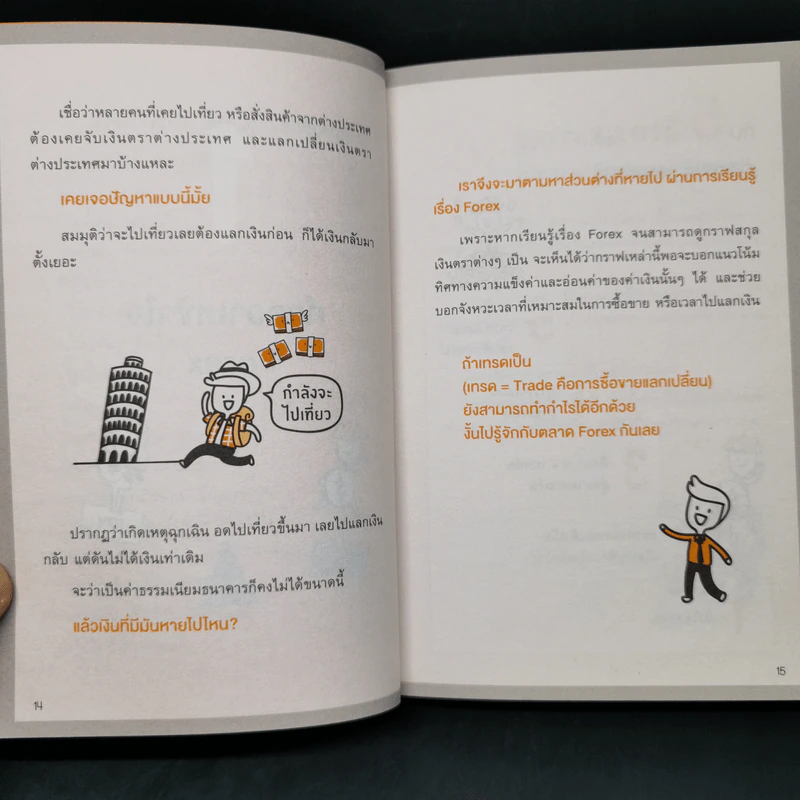 เชื่อว่าหลายคนที่เคยไปเที่ยว หรือสั่งสินค้าจากต่างประเทศ
ต้องเคยจับเงินตราต่างประเทศ และแลกเปลี่ยนเงินตรา
ต่างประเทศมาบ้างแหละ
เคยเจอปัญหาแบบนี้มั้ย
สมมุติว่าจะไปเที่ยวเลยต้องแลกเงินก่อน ก็ได้เงินกลับมา
ตั้งเยอะ
กำลังจะ
ไปเที่ยว
ปรากฏว่าเกิดเหตุฉุกเฉิน อดไปเที่ยวขึ้นมา เลยไปแลกเงิน
กลับ แต่ดันไม่ได้เงินเท่าเดิม
จะว่าเป็นค่าธรรมเนียมธนาคารก็คงไม่ได้ขนาดนี้
แล้วเงินที่มีมันหายไปไหน?
14
เราจึงจะมาตามหาส่วนต่างที่หายไป ผ่านการเรียนรู้
เรื่อง Forex
เพราะหากเรียนรู้เรื่อง Forex จนสามารถดูกราฟสกุล
เงินตราต่างๆ เป็น จะเห็นได้ว่ากราฟเหล่านี้พอจะบอกแนวโน้ม
ทิศทางความแข็งค่าและอ่อนค่าของค่าเงินนั้นๆ ได้ และช่วย
บอกจังหวะเวลาที่เหมาะสมในการซื้อขาย หรือเวลาไปแลกเงิน
ถ้าเทรดเป็น
(เทรด = Trade คือการซื้อขายแลกเปลี่ยน)
ยังสามารถทำกำไรได้อีกด้วย
งั้นไปรู้จักกับตลาด Forex กันเลย
15